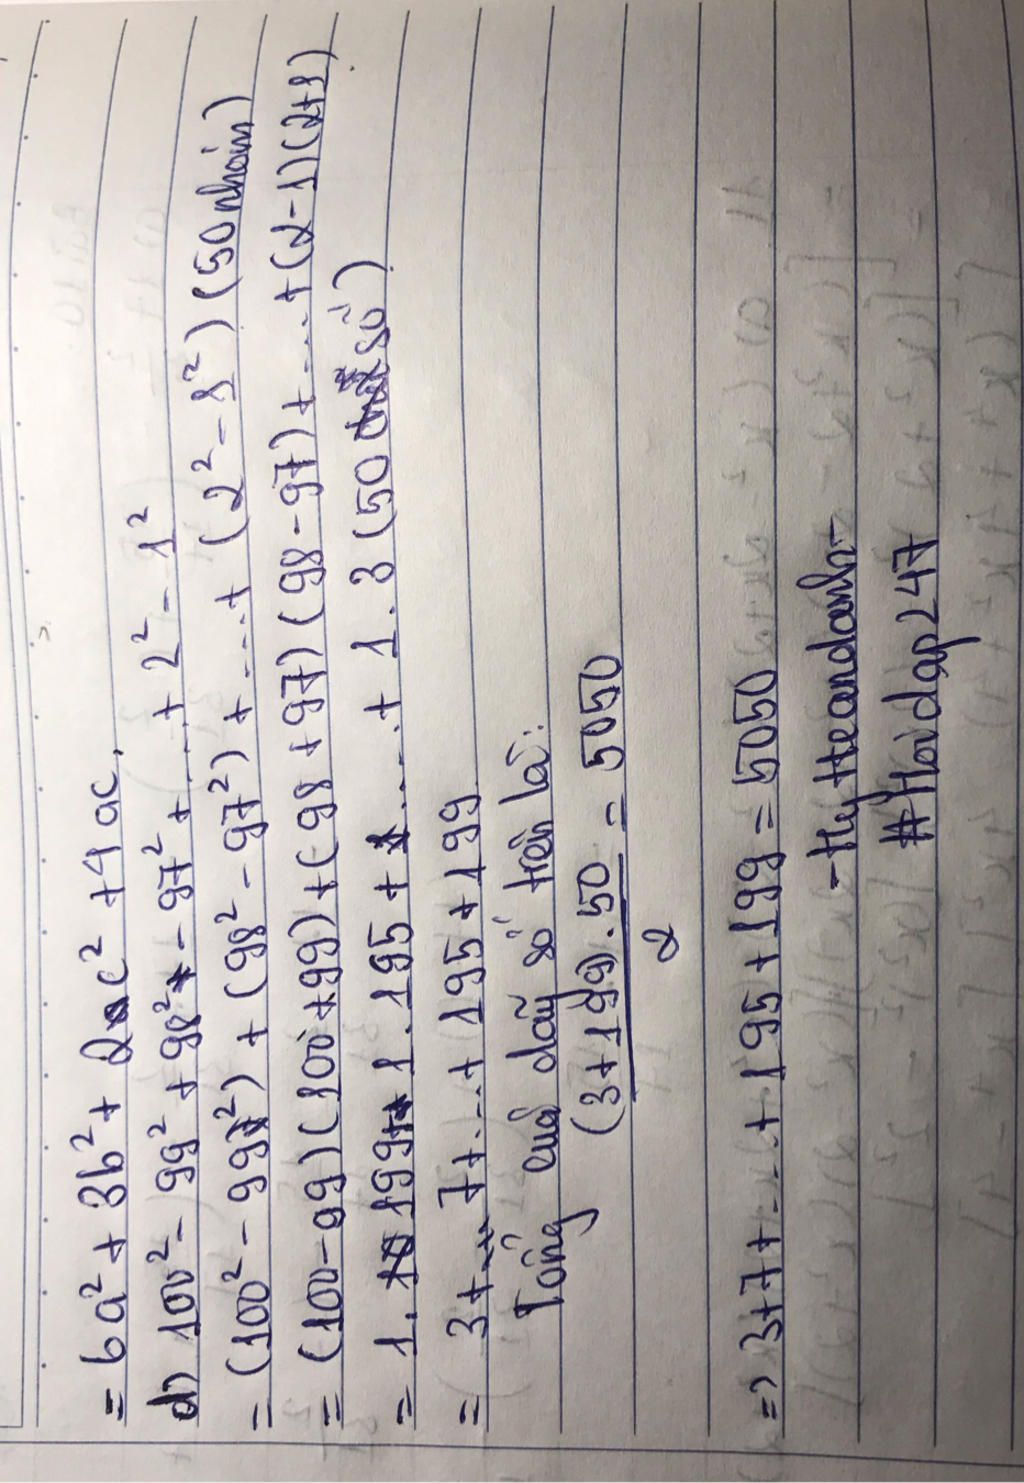 = 6a² + 3b² + 2c² + 4ac.
d) 100² - 99² + 98² - 97² + ... + 2² - 1²
= (100² - 99²) + (98² - 97²) + .... + (2² - 1²) (50 nhóm)
= (100 - 99)(100 + 99) + (98 + 97)(98 - 97) + ... + (2 - 1)(2+1)
= 1.199 + 1.195 + .... + 1.3 (50 số)
= 3 + 7 + ... + 195 + 199
Tổng của dãy số trên là:
(3 + 199).50 = 5050
2
=> 3 + 7 + ... + 195 + 199 = 5050
#Hoidap247